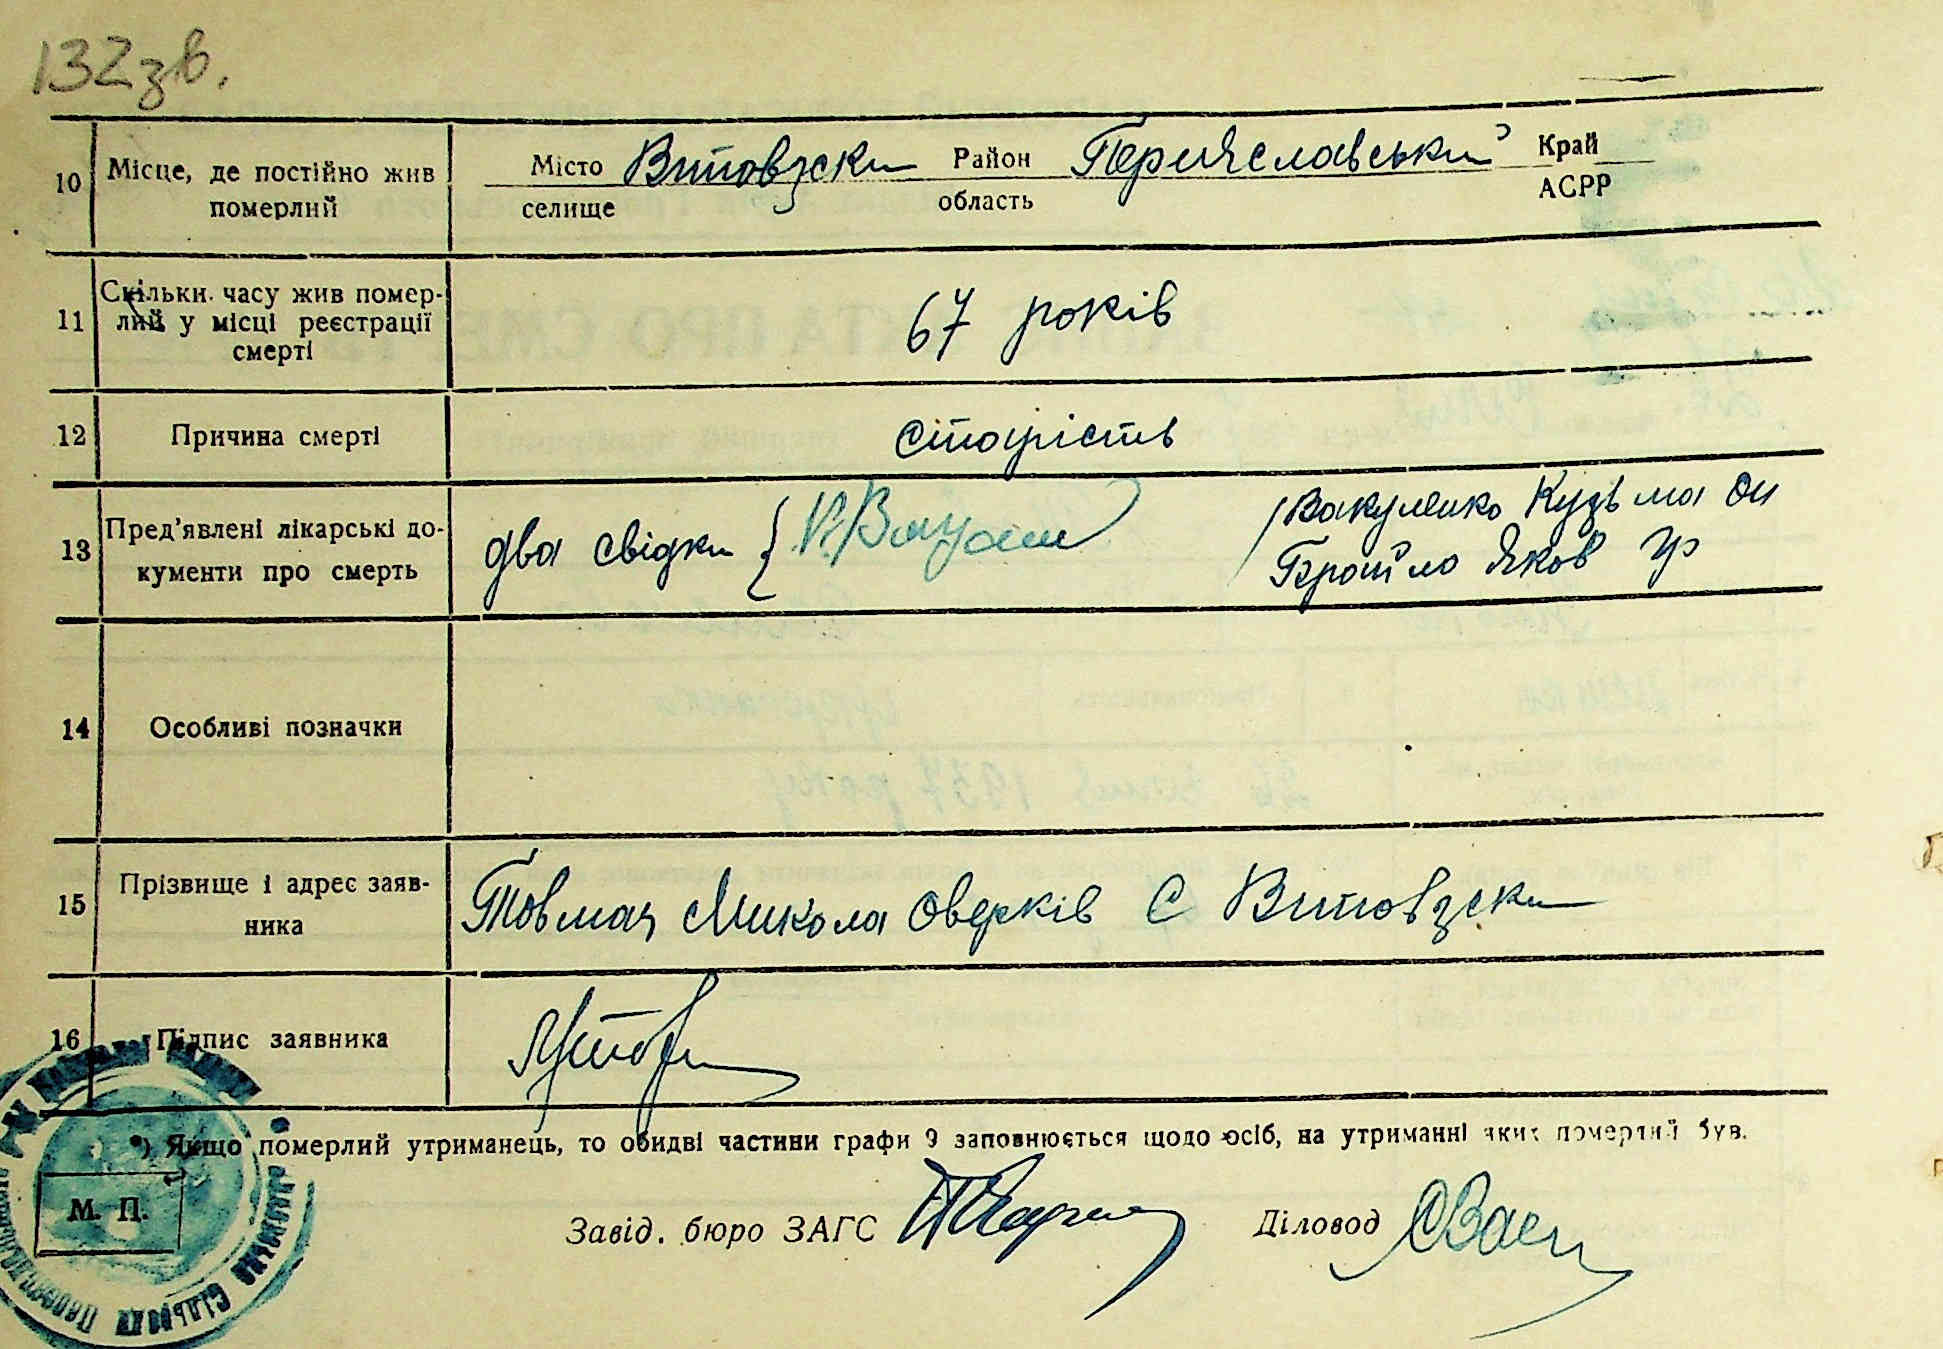 132 зв.
10 Місце, де постійно жив померлий
Місто селище Витовзски Район область Периславський Край АСРР
11 Скільки часу жив помер-
лий у місці реєстрації
смерті
67 років
12 Причина смерті старість
13 Пред'явлені лікарські до-
кументи про смерть
два свідки { / Вакуленко Кузьма
Яков
14 Особливі позначки
15 Прізвище і адрес заяв-
ника
Товмач Микола Оверків С Витовзски
16 Підпис заявника
*) Якщо померлий утриманець, то обидві частини графи 9 заповнюється щодо осіб, на утриманні яких померлий був.
М. П.
Завід. бюро ЗАГС Діловод